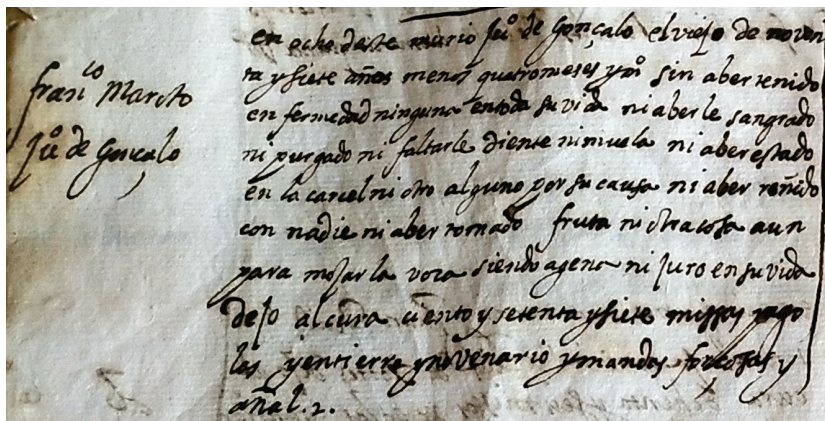 franco Marcto
Juo de Gonçalo
en ocho deste murio Juo de Gonçalo el viejo de noven
ta y siete años menos quatro meses y mo sin aber tenido
en fermedad ninguna en toda su vida ni aberle sangrado
ni purgado ni faltarle diente ni muela ni aber estado
en la carcel ni otro alguno por su causa ni aber reñido
con nadie ni aber tomado fruta ni otra cosa aun
para mojar la voca siendo agena ni juro en su vida
dejo al cura ciento y setenta y siete missas pago
las y entierro y novenario y mandas forçosas y
añal. 2.